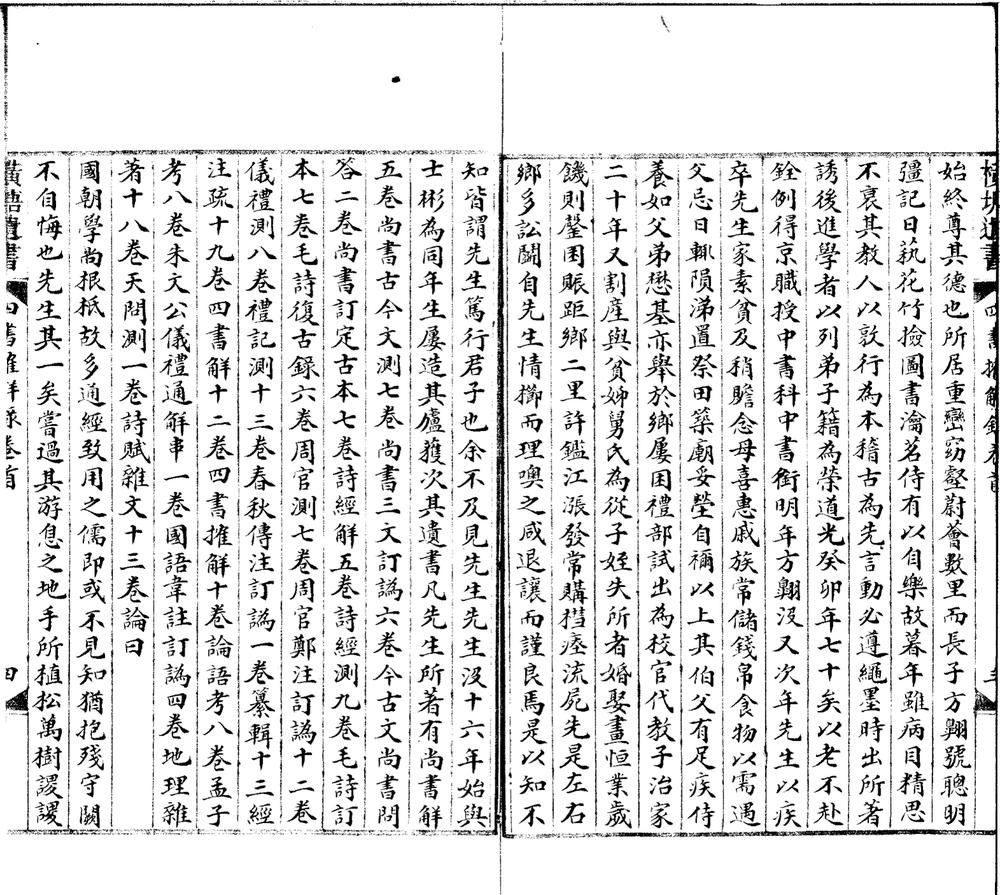 始終尊其德也所居重巒窈壑蔚薈數里而長子方翺號聰明
彊記日蓺花竹撿圖書瀹茗侍有以自樂故暮年雖病目精思
不衰其教人以敦行為本稽古為先言動必遵繩墨時出所著
誘後進學者以列弟子籍為榮道光癸卯年七十矣以老不赴
銓例得京職授中書科中書銜明年方翺沒又次年先生以疾
卒先生家素貧及稍贍念母喜惠戚族常儲錢帛食物以需遇
父忌日輒隕涕置祭田築廟妥塋自禰以上其伯父有足疾侍
養如父弟懋基亦舉於鄉屢困禮部試出為校官代教子治家
二十年又割產與貧姊舅氏為從子姪失所者婚娶畫恒業歲
饑則罄囷賑距鄉二里許鑑江漲發常購槥瘞流屍先是左右
鄉多訟鬭自先生情擲而理噢之咸退讓而謹良焉是以知不
知皆謂先生篤行君子也余不及見先生先生沒十六年始與
士彬為同年生屢造其廬獲次其遺書凡先生所著有尚書解
五卷尚書古今文測七卷尚書三文訂譌六卷今古文尚書問
答二卷尚書訂定古本七卷詩經解五卷詩經測九卷毛詩訂
本七卷毛詩復古錄六卷周官測七卷周官鄭注訂譌十二卷
儀禮測八卷禮記測十三卷春秋傳注訂譌一卷纂輯十三經
注疏十九卷四書解十二卷四書推解十卷論語考八卷孟子
考八卷朱文公儀禮通解串一卷國語韋註訂譌四卷地理雜
著十八卷天問測一卷詩賦雜文十三卷論曰
國朝學尚根柢故多通經致用之儒即或不見知猶抱殘守闕
不自悔也先生其一矣嘗過其游息之地手所植松萬樹謖謖
遺書 四書推解錄卷首 四